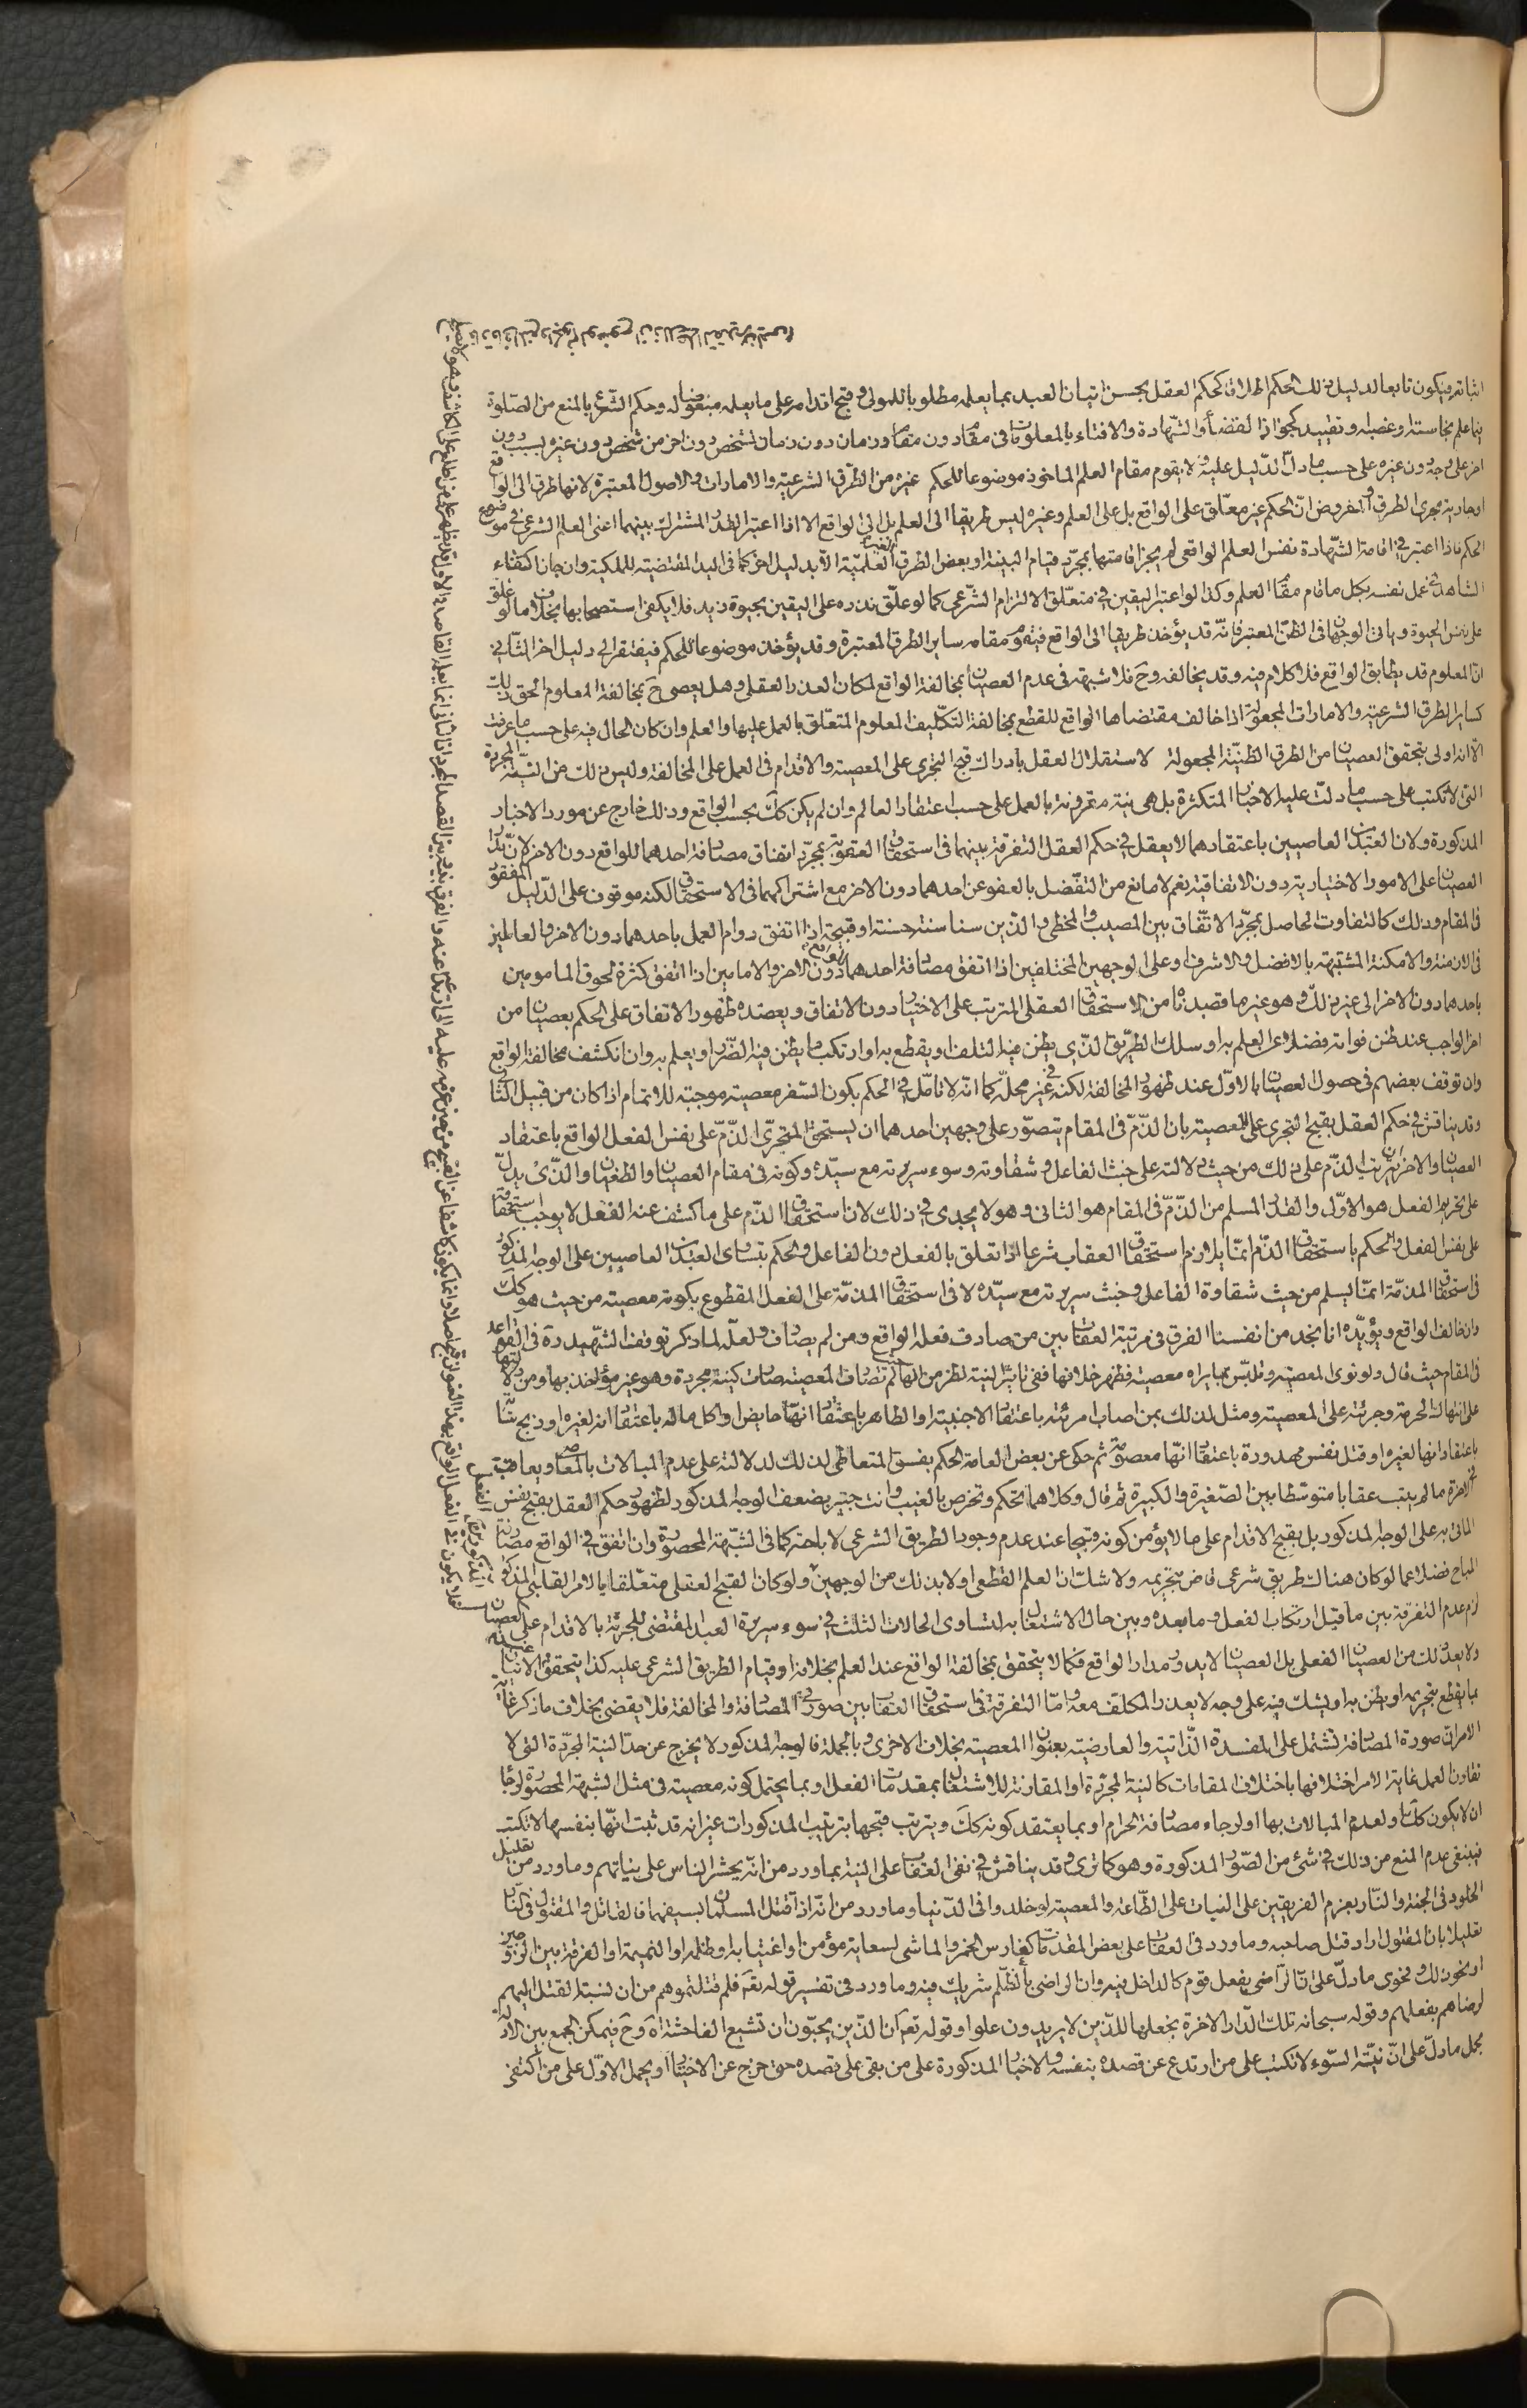 اثباته فيكون تابعا لدليل ذلك الحكم اطلاقا كحكم العقل بحسن اتيان العبد بما يعلمه مطلوبا للمولى وقبح اقدامه على ما يعلمه مبغوضا له وحكم الشرع بالمنع من الصلوة
فيما علم نجاسته او غصبه وتقييد كجواز القضاء والشهادة والافتاء بالمعلومات في مقام دون مقام وزمان دون زمان لشخص دون اخر من شخص دون غيره بسبب دون
اخر على وجه دون غيره على حسب ما دل الدليل عليه ولا يقوم مقام العلم الماخوذ موضوعا للحكم غيره من الطرق الشرعية والامارات والاصول المعتبرة لانها طرق الى الواقع
او جارية مجرى الطرق والمفروض ان الحكم غير معلق على الواقع بل على العلم وغيره ليس طريقا الى العلم بل الى الواقع الا اذا اعتبر القدر المشترك بينهما اعنى العلم الشرعي في موضوع
الحكم فاذا اعتبر في اقامة الشهادة نفس العلم الواقعى لم يجز اقامتها بمجرد قيام البينة او بعض الطرق الغير العلمية الا بدليل اخر كما في اليد المقتضية للملكية وان جاز اكتفاء
الشاهد في عمل نفسه بكل ما قام مقام العلم وكذا لو اعتبر اليقين في متعلق الالتزام الشرعي كما لو علق نذره على اليقين بحيوة زيد فلا يكفى استصحابها بخلاف ما لو علق
على نفس الحيوة وياتى الوجهان في الظن المعتبر فانه قد يؤخذ طريقا الى الواقع فيقوم مقامه ساير الطرق المعتبرة وقد يؤخذ موضوعا للحكم فيفتقر الى دليل اخر الثاني
ان المعلوم قد يطابق الواقع فلا كلام فيه وقد يخالفه وح فلا شبهة في عدم العصيان بمخالفة الواقع لمكان العذر العقلى وهل يعصى ح بمخالفة المعلوم الحق ذلك
كساير الطرق الشرعية والامارات المجعولة اذا خالف مقتضاها الواقع للقطع بمخالفة التكليف المعلوم المتعلق بالعمل عليها والعلم وان كان الحال فيه على حسب ما عرفت
الا انه اولى بتحقق العصيان من الطرق الظنية المجعولة لاستقلال العقل بادراك قبح التجرى على المعصية والاقدام في العمل على المخالفة وليس ذلك من النية المجردة
التى لا تكتب على حسب ما دلت عليه الاخبار المتكثرة بل هى نية مقرونة بالعمل على حسب اعتقاد العالم وان لم يكن كك بحسب الواقع وذلك خارج عن مورد الاخبار
المذكورة ولان العبدين العاصيين باعتقادهما لا يعقل في حكم العقل التفرقة بينهما في استحقاق العقوبة بمجرد اتفاق مصادفة احدهما للواقع دون الاخر لان مدار
العصيان على الامور الاختيارية دون الاتفاقية نعم لا مانع من التفضل بالعفو عن احدهما دون الاخر مع اشتراكهما في الاستحقاق لكنه موقوف على الدليل المفقود
في المقام وذلك كالتفاوت الحاصل بمجرد الاتفاق بين المصيب والمخطى والذين سنا سنة حسنة او قبيحة اذا اتفق دوام العمل باحدهما دون الاخر والعالمين
في الازمنة والامكنة المشتبهة بالافضل والاشرف او على الوجهين المختلفين اذا اتفق مصادفة احدهما للواقع دون الاخر والامامين اذا اتفق كثرة لحوق المامومين
باحدهما دون الاخر الى غير ذلك وهو غير ما قصدناه من الاستحقاق العقلى المترتب على الاختيار دون الاتفاق ويعضده ظهور الاتفاق على الحكم بعصيان من
اخر الواجب عند ظن فواته فضلا عن العلم به او سلك الطريق الذي يظن فيه التلف او يقطع به او ارتكب ما يظن فيه الضرر او يعلم به وان انكشف مخالفة الواقع
وان توقف بعضهم في حصول العصيان بالاول عند ظهور المخالفة لكنه في غير محله كما انه لا تامل في الحكم بكون السفر معصية موجبة للاتمام اذا كان من قبيل الثانى
وقد يناقش في حكم العقل بقبح التجرى على المعصية بان الذم في المقام يتصور على وجهين احدهما ان يستحق المتجرى الذم على نفس الفعل الواقع باعتقاد
العصيان والاخر ان يترتب الذم على ذلك من حيث دلالته على خبث الفاعل وشقاوته وسوء سريرته مع سيده وكونه في مقام العصيان والطغيان والذي يدل
على تحريم الفعل هو الاول والقدر المسلم من الذم في المقام هو الثانى وهو لا يجدى في ذلك لان استحقاق الذم على ما كشف عنه الفعل لا يوجب استحقاقه
على نفس الفعل والحكم باستحقاق الذم انما يلازم استحقاق العقاب شرعا اذا تعلق بالفعل دون الفاعل والحكم بتساوى العبدين العاصيين على الوجه المذكور
في استحقاق المذمة انما يسلم من حيث شقاوة الفاعل وخبث سريرته مع سيده لا في استحقاق المذمة على الفعل المقطوع بكونه معصية من حيث هو كك
وان خالف الواقع ويؤيده انا نجد من انفسنا الفرق في مرتبة العقاب بين من صادف فعله الواقع ومن لم يصادف ولعله لما ذكر توقف الشهيد ره في القواعد
في المقام حيث قال ولو نوى المعصية وتلبس بما يراه معصية فظهر خلافها ففى تاثير النية نظر من انها لما لم تصادف المعصية صارت كنية مجردة وهو غير مؤاخذ بها ومن دلالتها
على انتهاك الحرمة وجرئته على المعصية ومثل لذلك بمن اصاب امرئته باعتقاد الاجنبية او الطاهر باعتقاد انها حايض او اكل ماله باعتقاد انه لغيره او ذبح شاة
باعتقاد انها لغيره او قتل نفس مهدورة باعتقاد انها معصومة ثم حكى عن بعض العامة الحكم بفسق المتعاطى لذلك لدلالته على عدم المبالات بالمعاصى ويعاقب
في الاخرة ما لم يتب عقابا متوسطا بين الصغيرة والكبيرة ثم قال وكلاهما تحكم وتخرص بالغيب وانت خبير بضعف الوجه المذكور لظهور حكم العقل بقبح نفس الفعل
الماتى به على الوجه المذكور بل بقبح الاقدام على ما لا يؤمن كونه قبيحا عند عدم وجود الطريق الشرعي لاباحته كما في الشبهة المحصورة وان اتفق في الواقع مصادفة
المباح فضلا عما لو كان هناك طريق شرعي قاض بتحريمه ولا شك ان العلم القطعى اولا بذلك من الوجهين ولو كان القبح العقلى متعلقا بالامر القلبى المذكور
لزم عدم التفرقة بين ما قبل ارتكاب الفعل وما بعده وبين حال الاشتغال به لتساوى الحالات الثلث في سوء سريرة العبد المقتضى للجرئة بالاقدام على العصيان
ولا يعد ذلك من العصيان الفعلى بل العصيان لا يدور مدار الواقع فكما لا يتحقق بمخالفة الواقع عند العلم بخلافه او قيام الطريق الشرعي عليه كذا يتحقق الاتيان
بما يقطع بتحريمه او يظن به او يشك فيه على وجه لا يعذر المكلف معه واما التفرقة في استحقاق العقاب بين صورتى المصادفة والمخالفة فلا يقضى بخلاف ما ذكر غاية
الامر ان صورة المصادفة تشتمل على المفسدة الذاتية والعارضية بعنوان المعصية بخلاف الاخرى وبالجملة فالوجه المذكور لا يخرج عن حد النية المجردة التى لا
تقاون العمل غاية الامر اختلافها باختلاف المقامات كالنية المجردة او المقارنة للاشتغال بمقدمات الفعل او بما يحتمل كونه معصية في مثل الشبهة المحصورة لرجاء
ان لا يكون كك او لعدم المبالات بها او لرجاء مصادفة الحرام او بما يعتقد كونه كك ويترتب قبحها بترتيب المذكورات غير انه قد ثبت انها بنفسها لا تكتب
فينبغى عدم المنع من ذلك في شئ من الصور المذكورة وهو كما ترى وقد يناقش في نفى العقاب على النية بما ورد من انه يحشر الناس على نياتهم وما ورد من تعليل
الخلود في الجنة والنار بعزم الفريقين على الثبات على الطاعة والمعصية لو خلدوا في الدنيا وما ورد من انه اذا قتل المسلمان بسيفهما فالقاتل والمقتول في النار
تعليلا بان المقتول اراد قتل صاحبه وما ورد في العقاب على بعض المقدمات كغارس الخمر والماشى لسعاية مؤمن او اغتيابه او ظلمه او النميمة او الفرقة بين الزوجين
او نحو ذلك وفحوى ما دل على ان الراضى بفعل قوم كالداخل فيه وان الراضى بالظلم شريك فيه وما ورد في تفسير قوله تعالى فلم قتلتموهم من ان نسبة القتل اليهم
لرضاهم بفعلهم وقوله سبحانه تلك الدار الاخرة نجعلها للذين لا يريدون علوا وقوله تعالى ان الذين يحبون ان تشيع الفاحشة اه وح فيمكن الجمع بين الادلة
بحمل ما دل على ان نية السوء لا تكتب على من ارتدع عن قصده بنفسه والاخبار المذكورة على من بقى على قصده حتى خرج عن الاختيار او يحمل الاول على من اكتفى